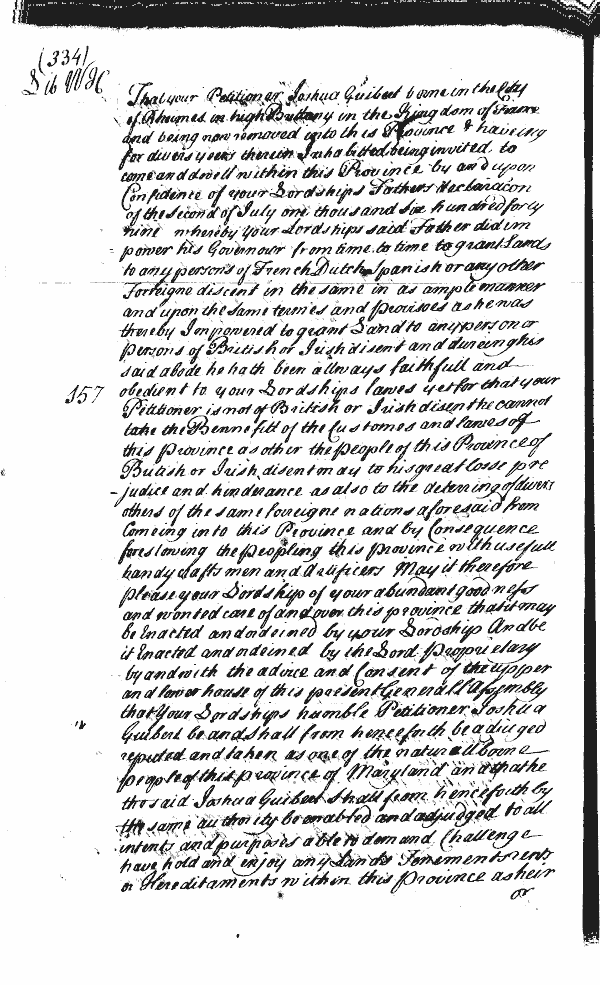 (334)
Lib WHC
That your Petitioner Joshua Guibert borne in the City
of Rhemes in high Brittany in the Kingdom of France
and being now removed into this Province & haveing
for divers yeers therein Inhabitted being invited to
come and dwell within this Province by and upon
Confidence of your Lordships Fathers declaracon
of the second of July one thousand six hundred forty
nine whereby your Lordships said Father did im
power his Governour from time to time to grant Lands
to any persons of French Dutch Spanish or any other
Forreigne discent in the same in as ample manner
and upon the same termes and provisoes as he was
thereby Impowered to grant Land to any person or
persons of British or Irish disent and dureing his
said abode he hath been allways faithfull and
157 obedient to your Lordships lawes yet for that your
Petitioner is not of British or Irish disent he cannot
take the Bennefitt of the Customes and lawes of
this province as other the people of this Province of
British or Irish disent may to his great losse pre
judice and hinderance as also to the deterring of divers
others of the same foreigne nations aforesaid from
Comeing into this Province and by Consequence
foreslowing the peopling this province with usefull
handy craftsmen and Artificers May it therefore
please your Lordship of your abundant goodness
and wonted care of and over this province that it may
be Enacted and ordeined by your Lordship And be
it Enacted and ordeined by the Lord Proprietary
by and with the advice and Consent of the upper
and lower house of this present Generall Assembly
that Your Lordships humble Petitioner Joshua
Guibert be and shall from henceforth be adjudged
reputed and taken as one of the naturall borne
people of this province of Maryland and that he
the said Joshua Guibert shall from henceforth by
the same authority be enabled and adjudged to all
intents and purposes able to demand Challenge
have hold and enjoy any Lands Tenements rents
or Hereditaments within this Province as heir
or